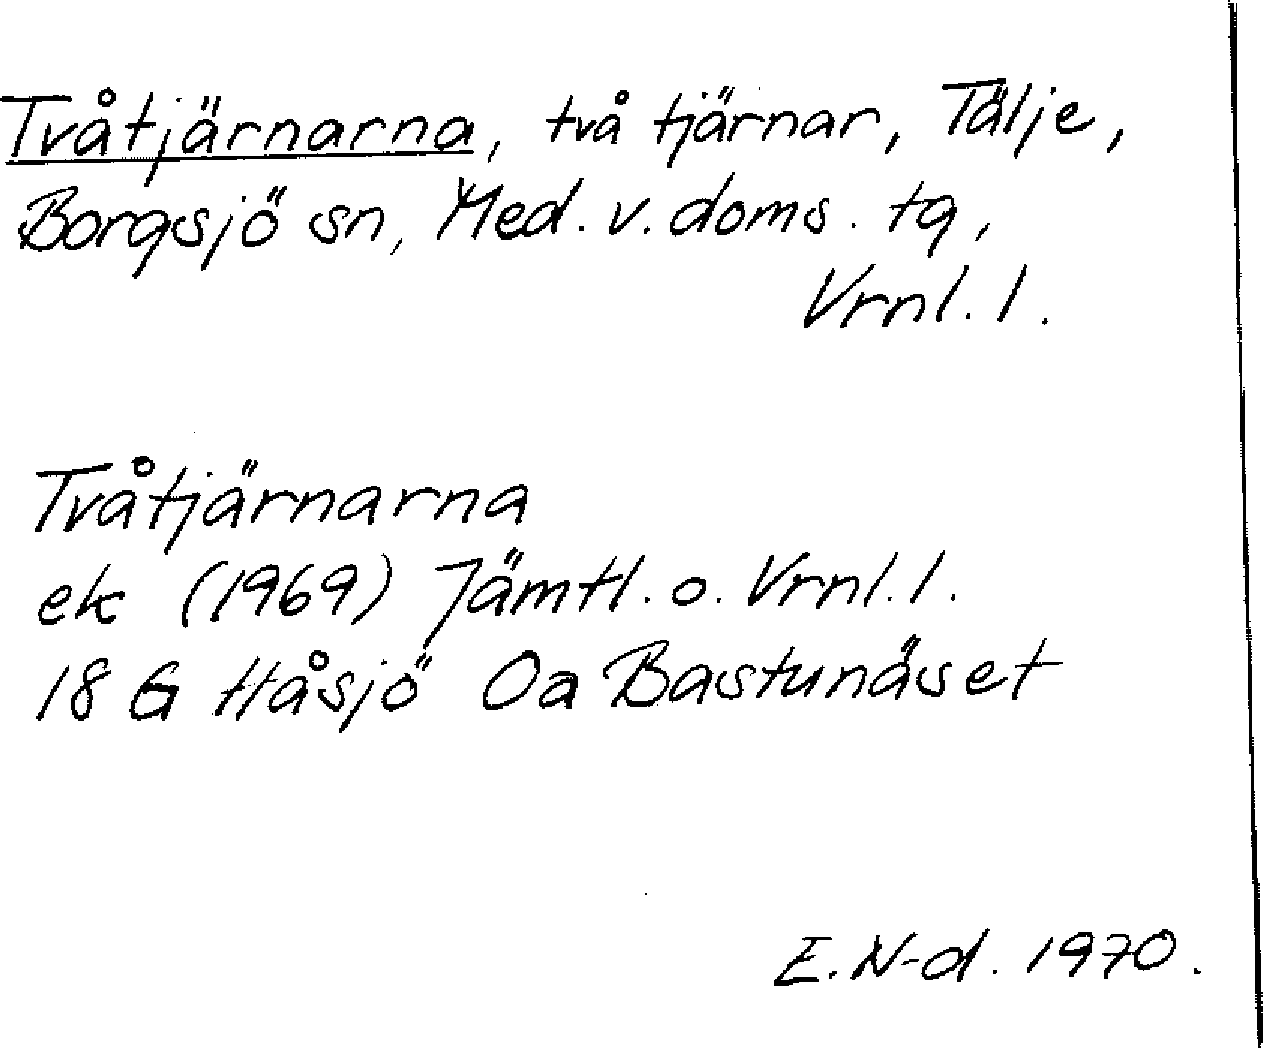 Tvåtjärnarna, två tjärnar, Tälje,
Borgsjö sn, Med. v. doms. tg,
Vrnl. l.
Tvåtjärnarna
ek (1969) Jämtl. o. Vrnl. l.
18 G Håsjö Oa Bastunäset
E. N-d. 1970.